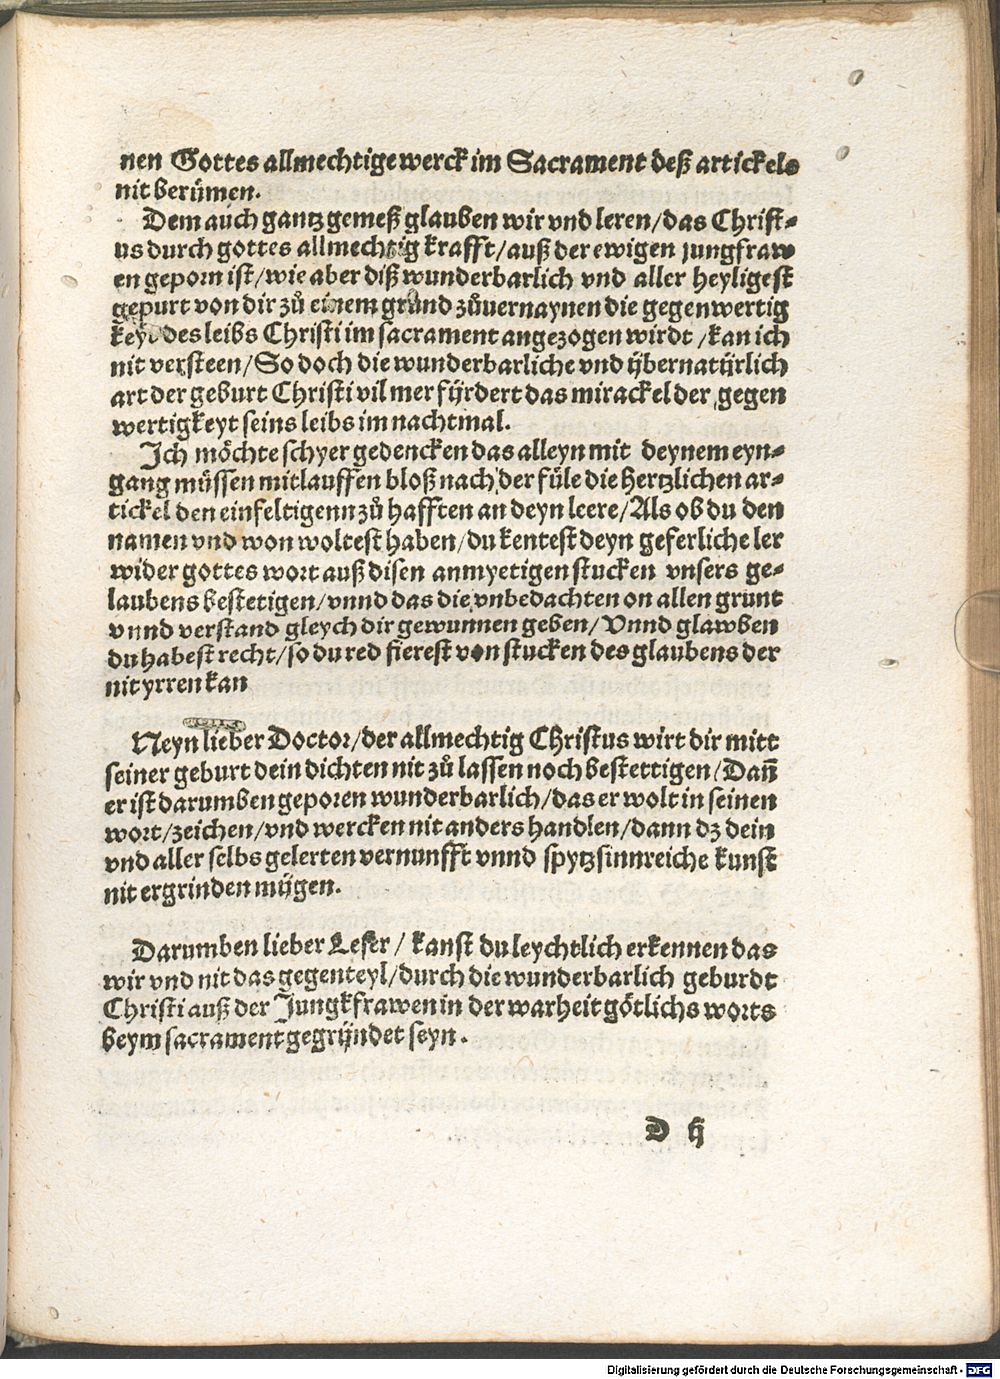 nen Gottes allmechtige werck im Sacrament deß artickels
nit berümen.
Dem auch gantz gemeß glauben wir vnd leren/das Christ-
us durch gottes allmechtig krafft/auß der ewigen jungfraw
en geporn ist/wie aber diß wunderbarlich vnd aller heyligest
gepurt von dir zů einem grund zůuernaynen die gegenwertig
keyt des leibs Christi im sacrament angezogen wirdt/kan ich
nit versteen/So doch die wunderbarliche vnd ijbernatijrlich
art der geburt Christi vil mer fijrdert das mirackel der gegen
wertigkeyt seins leibs im nachtmal.
Ich möchte schyer gedencken das alleyn mit deynem eyn-
gang müssen mitlauffen bloß nach der füle die hertzlichen ar-
tickel den einfeltigenn zů hafften an deyn leere/Als ob du den
namen vnd won woltest haben/du kentest deyn geferliche ler
wider gottes wort auß disen anmyetigen stucken vnsers ge-
laubens bestetigen/vnnd das die vnbedachten on allen grunt
vnnd verstand gleych dir gewunnen geben/Vnnd glawben
du habest recht/so du red fierest von stucken des glaubens der
nit yrren kan
Neyn lieber Doctor/der allmechtig Christus wirt dir mitt
seiner geburt dein dichten nit zů lassen noch bestettigen/Dañ
er ist darumben geporen wunderbarlich/das er wolt in seinen
wort/zeichen/vnd wercken nit anders handlen/dann dz dein
vnd aller selbs gelerten vernunfft vnnd spytzsinnreiche kunst
nit ergrinden mijgen.
Darumben lieber Leser/kanst du leychtlich erkennen das
wir vnd nit das gegenteyl/durch die wunderbarlich geburdt
Christi auß der Jungkfrawen in der warheit götlichs worts
beym sacrament gegrijndet seyn.
D ij
Digitalisierung gefördert durch die Deutsche Forschungsgemeinschaft - DFG